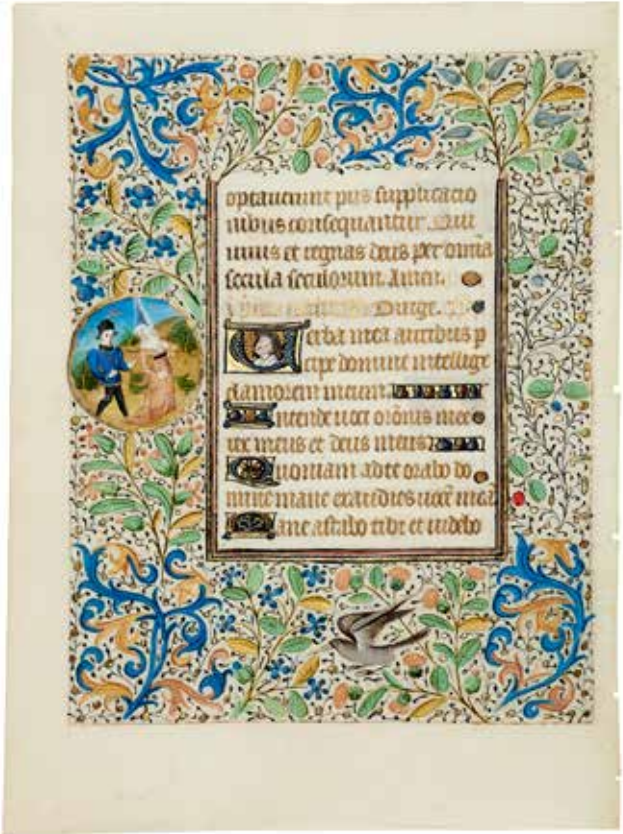 optauerunt piis supplicatio
nibus consequantur. Qui
uiuis et regnas deus per omīa
secula seculorum. Amen.
Dirige.
Verba mea auribus p
cipe domine intellige
clamorem meum
Intende uoci orōnis mee
rex meus et deus meus
Quoniam ad te orabo do
mine mane exaudies uocē meā
Mane astabo tibi et uidebo